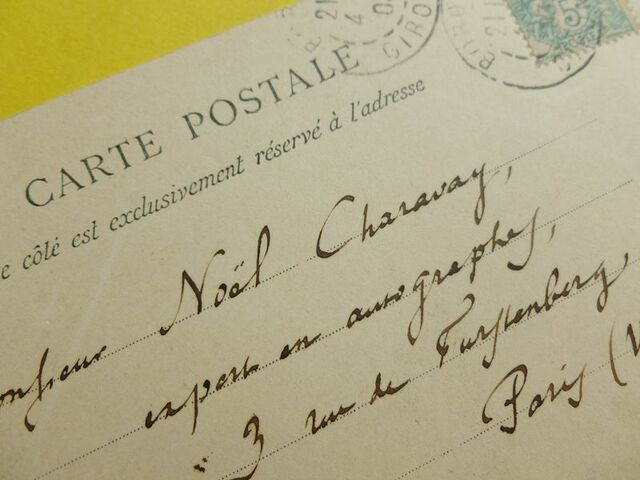 CARTE POSTALE
e côté est exclusivement réservé à l'adresse
onsieur Noël Charavay,
expert en autographes,
3 rue de Furstenberg,
Paris (V
21
4
GIRO
BORD
21
5